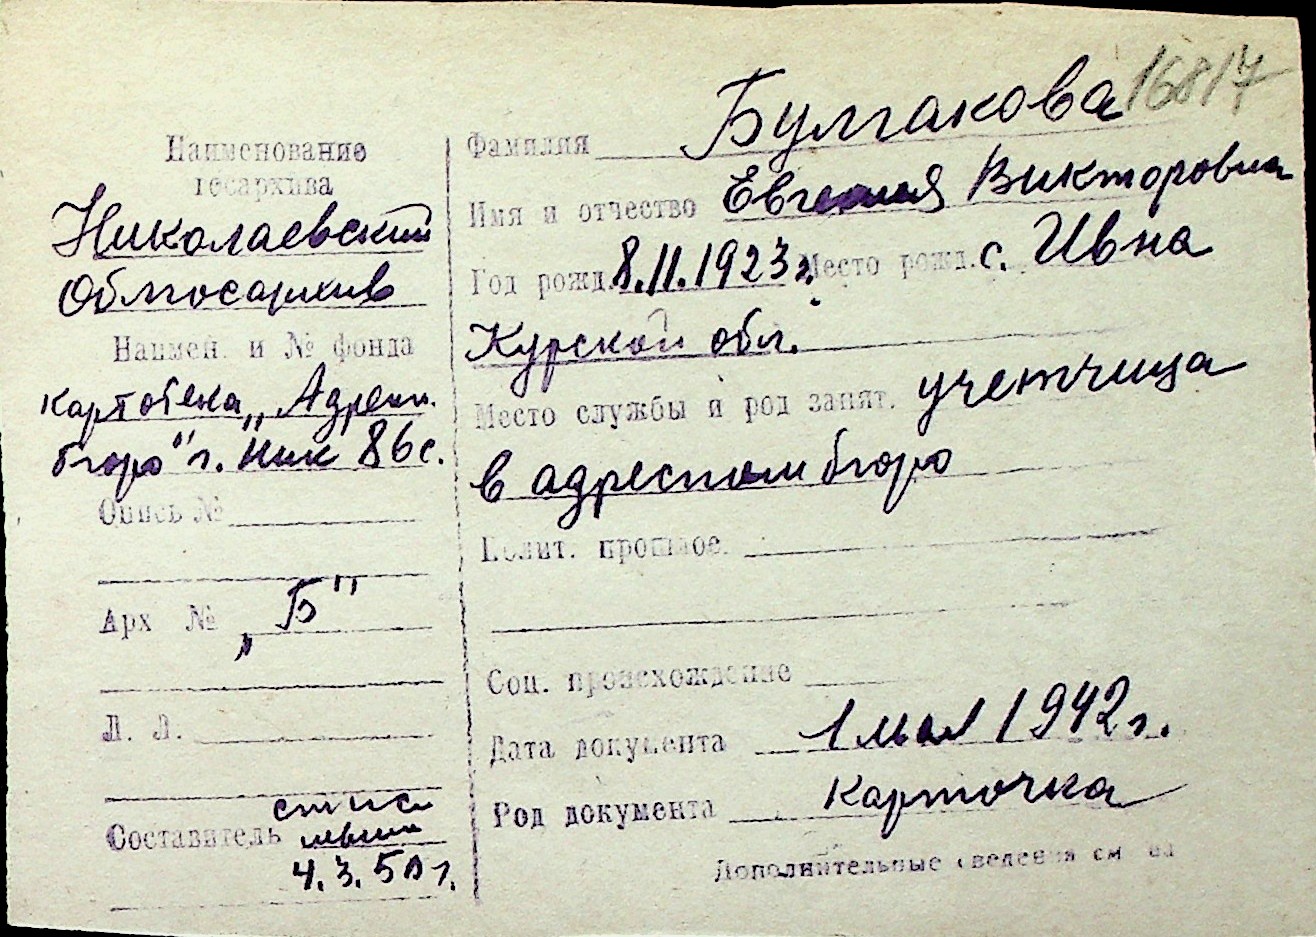 16817
Наименование
госархива
Николаевский
Облгосархив
Наимен. и № фонда
картотека „Адресн.
бюро" г. Ник 86 с.
Опись №
Арх № „Б"
Л. Л.
Составитель
4.3.50 г.
Фамилия Булгакова
Имя и отчество Евгения Викторовна
Год рожд. 8.11.1923 г. Место рожд. с. Ивна
Курской обл.
Место службы и род занят. учетчица
в адресном бюро
Полит. прошлое.
Соц. происхождение
Дата документа 1 мая 1942 г.
Род документа карточка
Дополнительные сведения см на